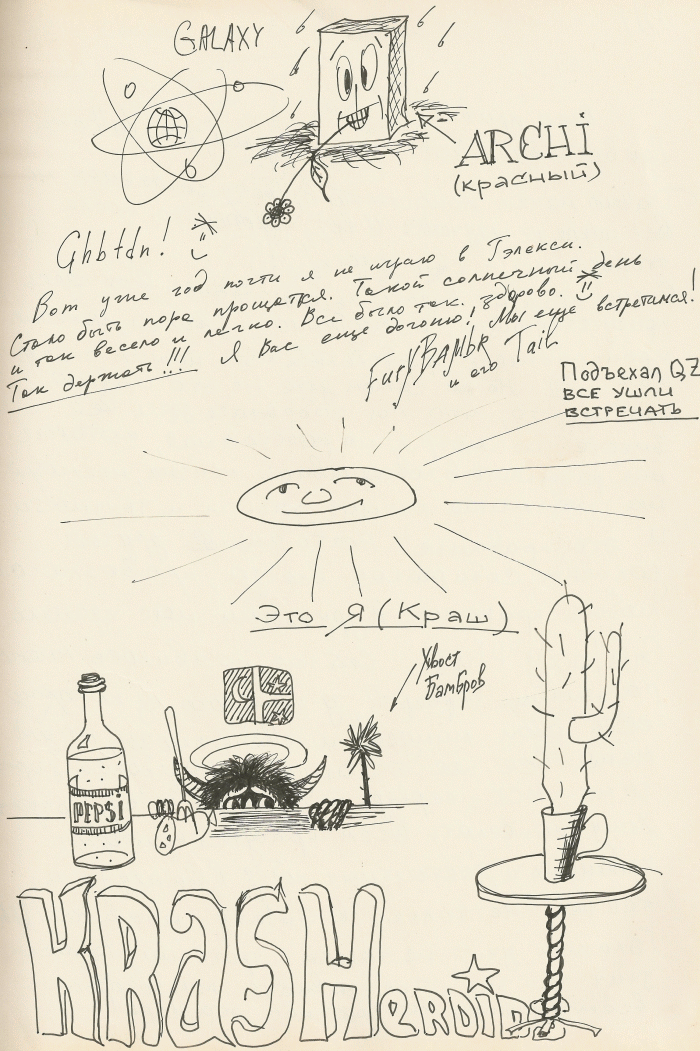 GALAXY
ARCHi
(красный)
Ghbtdn!
Вот уже год почти я не играю в Гэлекси.
Стало быть пора прощатся. Такой солнечный день
и так весело и легко. Все было так здорово.
Так держать!!! Я Вас еще догоню! Мы еще встретимся!
FuryBAMbR
и его Tail
Подъехал QZ
ВСЕ УШЛИ
ВСТРЕЧАТЬ
Это Я (Краш)
Хвост
Бамбров
PEPSi
KRASHeRoin